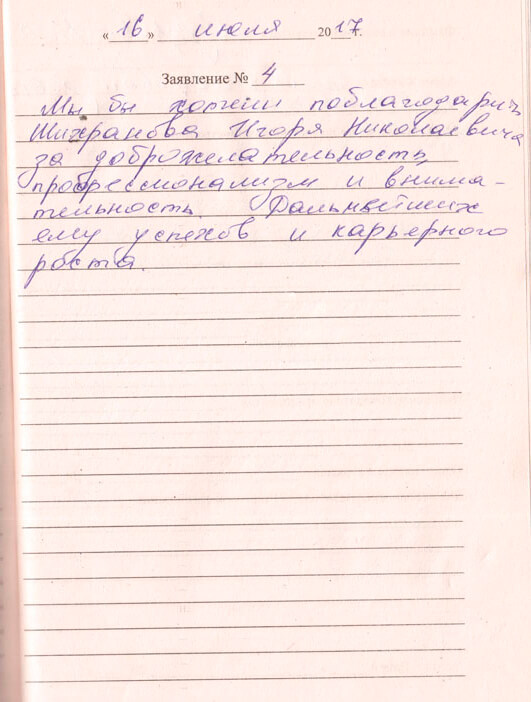 « 16 » июля 2017 г.
Заявление № 4
Мы бы хотели поблагодарить
Игоря Николаевича
за доброжелательность,
профессионализм и внима-
тельность. Дальнейших
ему успехов и карьерного
роста.